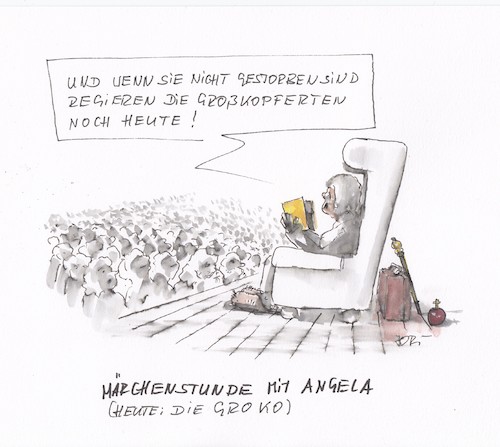 UND WENN SIE NICHT GESTORBEN SIND
REGIEREN DIE GROßKOPFERTEN
NOCH HEUTE!
MÄRCHENSTUNDE MIT ANGELA
(HEUTE: DIE GROKO)